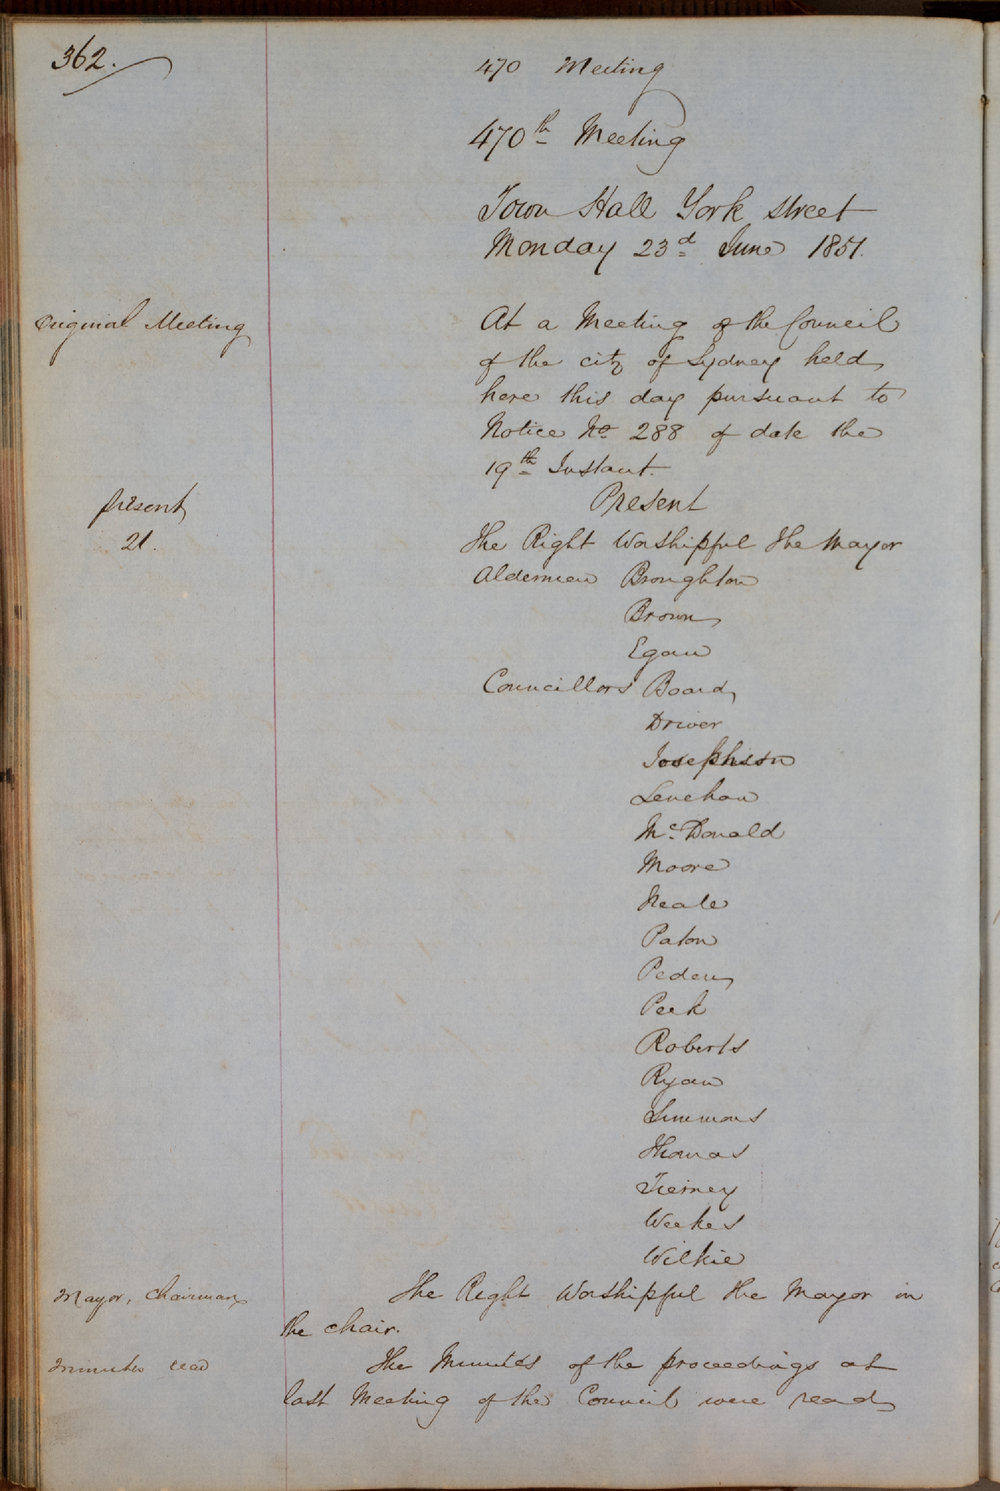 362.
470 Meeting
470th Meeting
Town Hall York street
Monday 23d June 1851.
Original Meeting
At a Meeting of the Council
of the city of Sydney held
here this day pursuant to
Notice No 288 of date the
19th Instant.
Present
present
21.
The Right Worshipful The Mayor
Aldermen Broughton
Brown
Egan
Councillors Board
Driver
Josephson
Lenehan
McDonald
Moore
Neale
Paton
Peden
Peek
Roberts
Ryan
Simmons
Thomas
Tierney
Weekes
Wilkie
Mayor, Chairman
The Right Worshipful the Mayor in
the chair.
Minutes read
The Minutes of the proceedings at
last Meeting of the Council were read